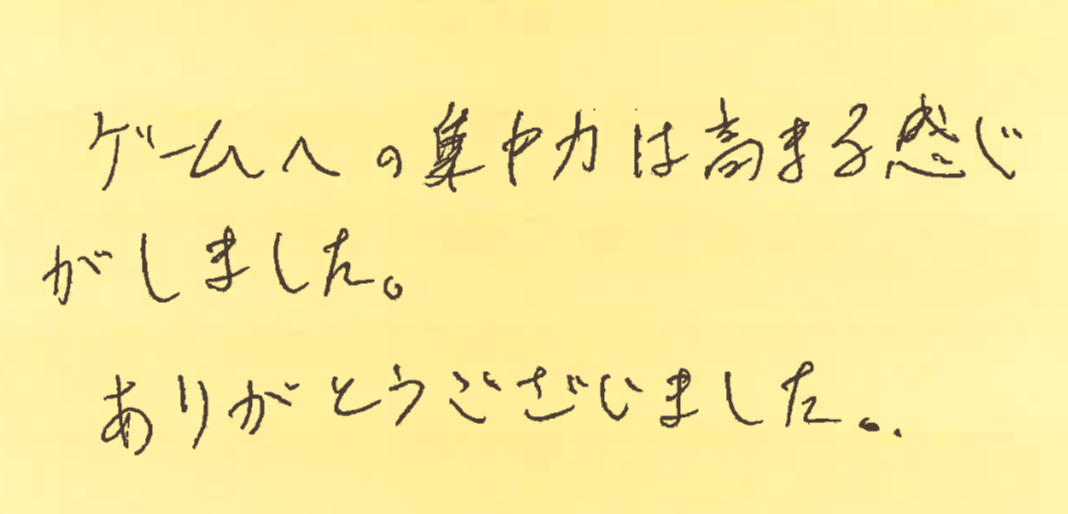 ゲームへの集中力は高まる感じ
がしました。
ありがとうございました。